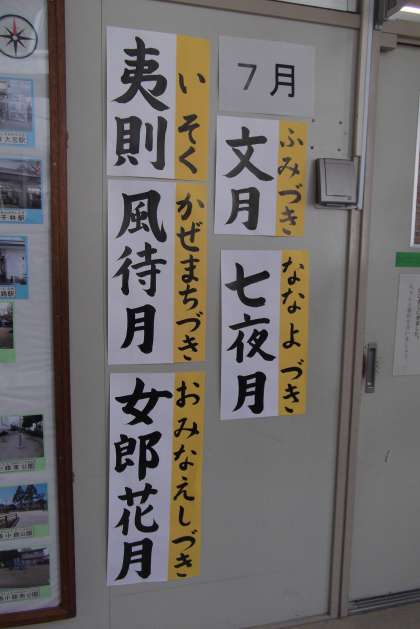 7月
文月
ふみづき
七夜月
ななよづき
夷則
いそく
風待月
かぜまちづき
女郎花月
おみなえしづき